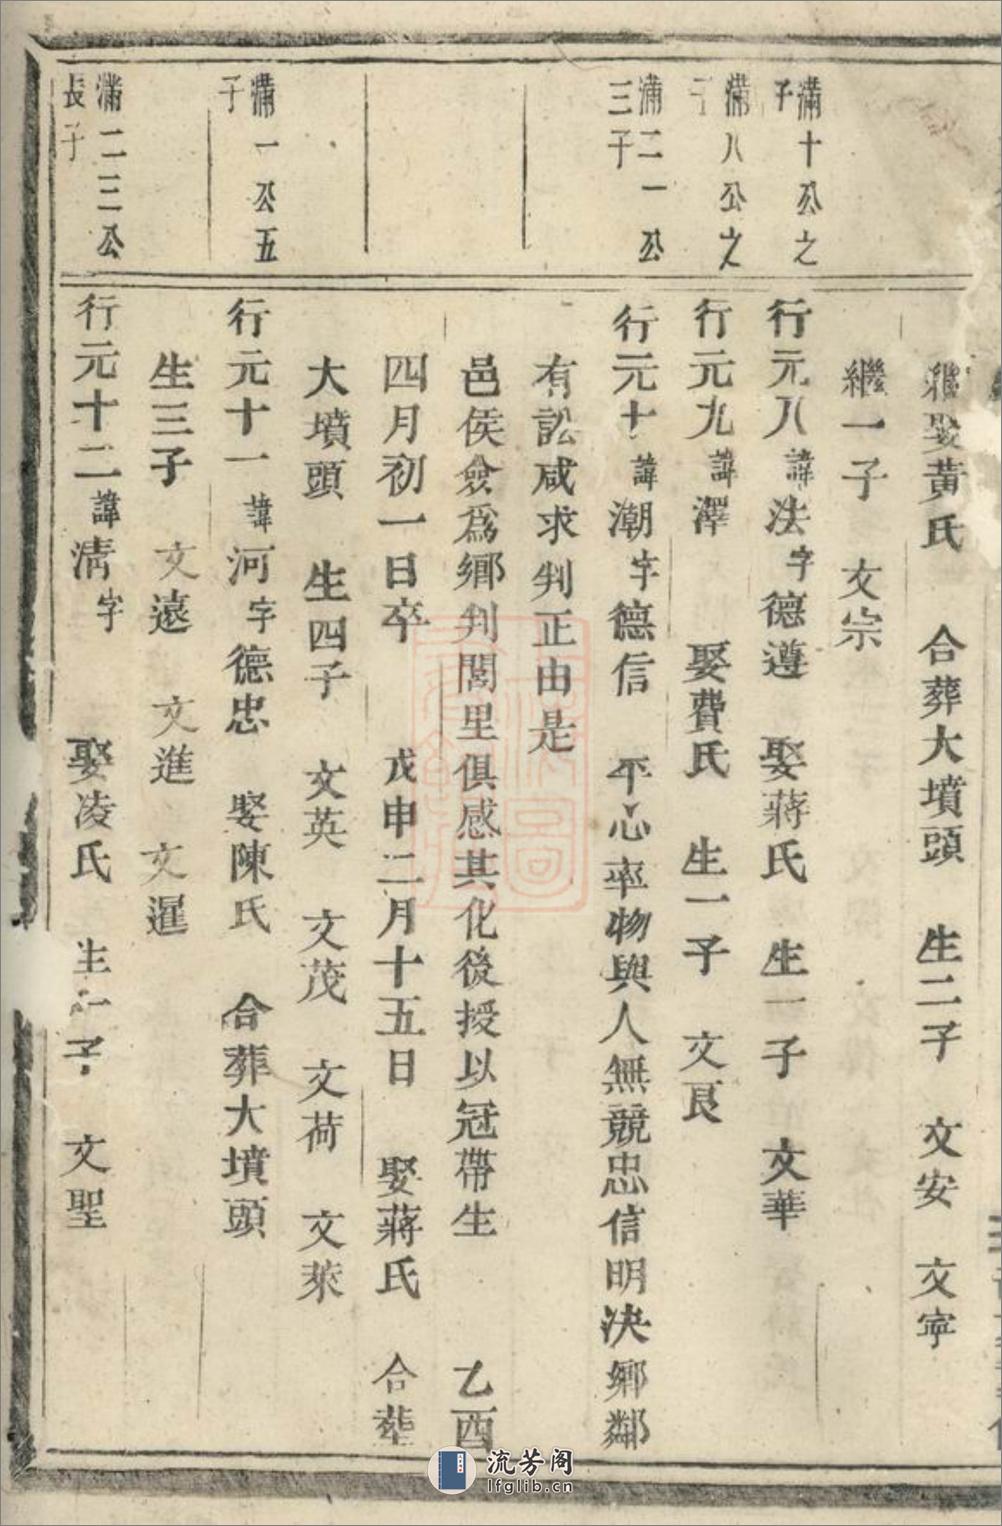 繼娶黃氏 合葬大墳頭 生二子 文安 文寕
繼一子 文宗
滿十公之
子
行元八諱法字德遵 娶蔣氏 生一子 文華
滿八公之
子
行元九諱澤 娶費氏 生一子 文良
滿二一公
三子
行元十諱潮字德信 平心率物與人無競忠信明决鄉鄰
有訟咸求判正由是
邑侯僉爲鄉判閭里俱感其化後授以冠帶生 乙酉
四月初一日卒 戊申二月十五日 娶蔣氏 合葬
大墳頭 生四子 文英 文茂 文荷 文萊
滿一公五
子
行元十一諱河字德忠 娶陳氏 合葬大墳頭
生三子 文遠 文進 文暹
滿二三公
長子
行元十二諱淸字 娶凌氏 生一子 文聖
流芳阁
lfglib.cn